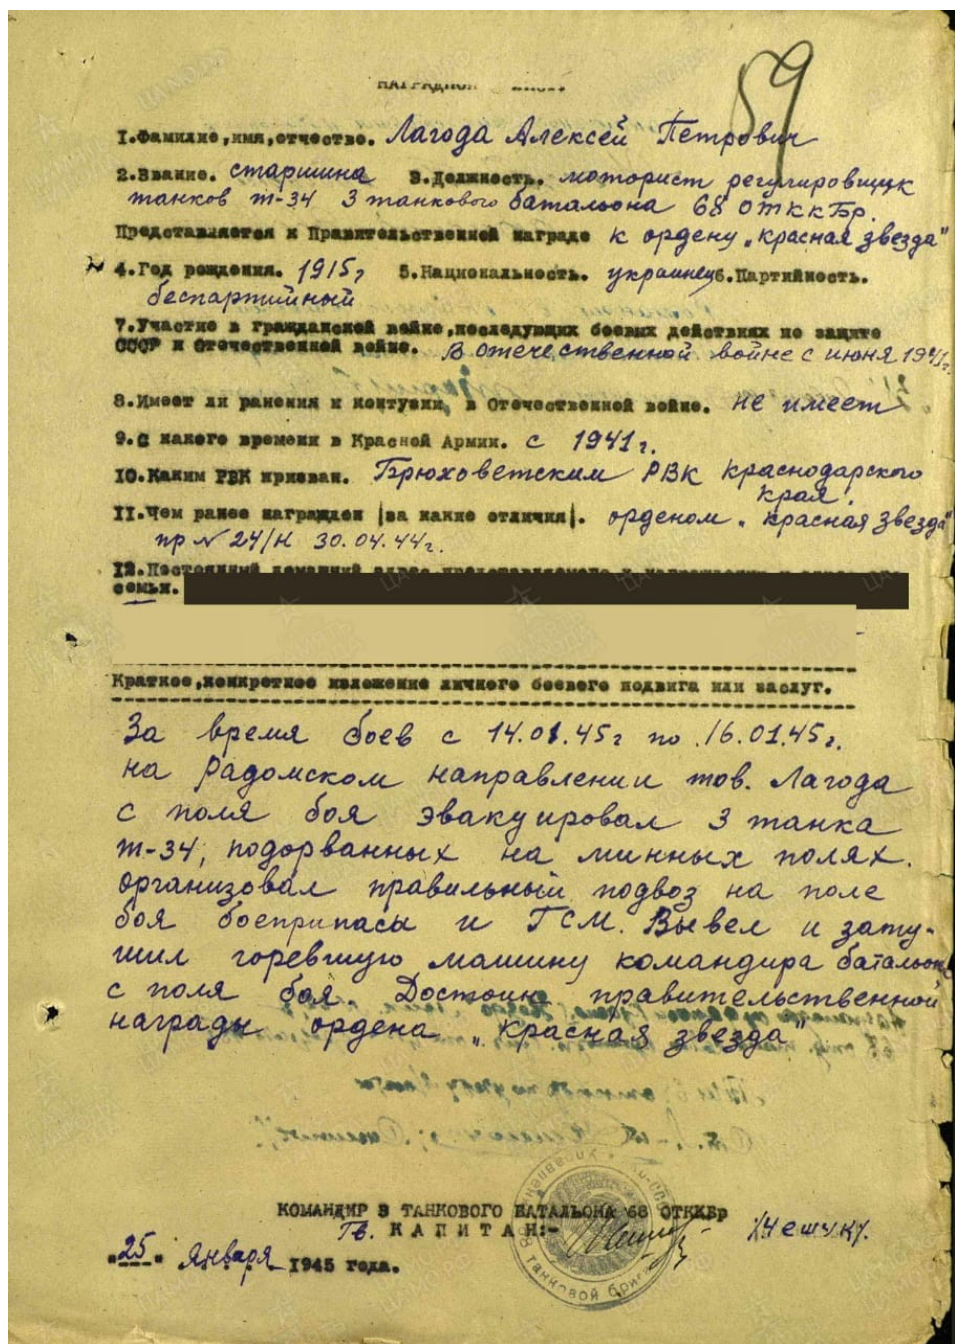 59
НАГРАДНОЙ ЛИСТ
1.Фамилие,имя,отчество. Лагода Алексей Петрович
2.Звание. старшина 3.Должность. моторист регулировщик
танков Т-34 3 танкового батальона 68 ОТККБр.
Представляется к Правительственной награде к ордену „Красная звезда"
4.Год рождения. 1915г 5.Национальность. украинец 6.Партийность.
беспартийный
7.Участие в гражданской войне,последующих боевых действиях по защите
СССР и Отечественной войне. В отечественной войне с июня 1941г.
8.Имеет ли ранения и контузии, в Отечественной войне. не имеет
9.С какого времени в Красной Армии. с 1941г.
10.Каким РВК призван. Брюховетским РВК Краснодарского
края.
11.Чем ранее награжден (за какие отличия). орденом „Красная звезда"
пр № 24/н 30.04.44г.
12.Постоянный домашний адрес представляемого к награждению и
семьи.
Краткое,конкретное изложение личного боевого подвига или заслуг.
За время боев с 14.01.45г по 16.01.45г.
на Радомском направлении тов. Лагода
с поля боя эвакуировал 3 танка
Т-34, подорванных на минных полях.
организовал правильный подвоз на поле
боя боеприпасы и ГСМ. Вывел и зату-
шил горевшую машину командира батальона
с поля боя. Достоин правительственной
награды ордена „Красная звезда"
КОМАНДИР 3 ТАНКОВОГО БАТАЛЬОНА 68 ОТККБр
Гв. КАПИТАН:-
"25" Января 1945 года.